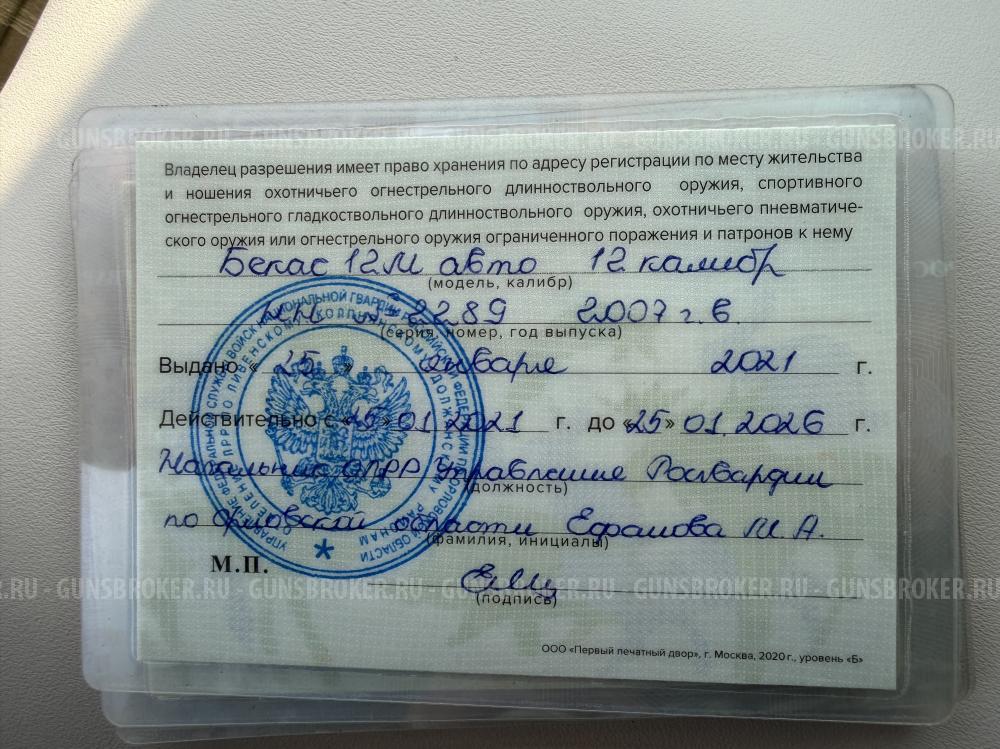 GUNSBROKER.RU - GUNSBROKER.RU - GUNSBROKER.RU - GUNSBROKER.RU - GUNSBROKER.RU
Владелец разрешения имеет право хранения по адресу регистрации по месту жительства
и ношения охотничьего огнестрельного длинноствольного оружия, спортивного
огнестрельного гладкоствольного длинноствольного оружия, охотничьего пневматиче-
ского оружия или огнестрельного оружия ограниченного поражения и патронов к нему
Бекас 12М авто 12 калибр
(модель, калибр)
2289 2007 г.в.
(серия, номер, год выпуска)
Выдано « 25 » января 2021 г.
Действительно с «25» 01.2021 г. до «25» 01.2026 г.
Начальник ОЛРР Управление Росгвардии
(должность)
по Орловской области М.А.
(фамилия, инициалы)
М.П.
GUNSBROKER.RU - GUNSBROKER.RU - GUNSBROKER.RU - GUNSBROKER.RU
(подпись)
ООО «Первый печатный двор», г. Москва, 2020 г., уровень «Б»